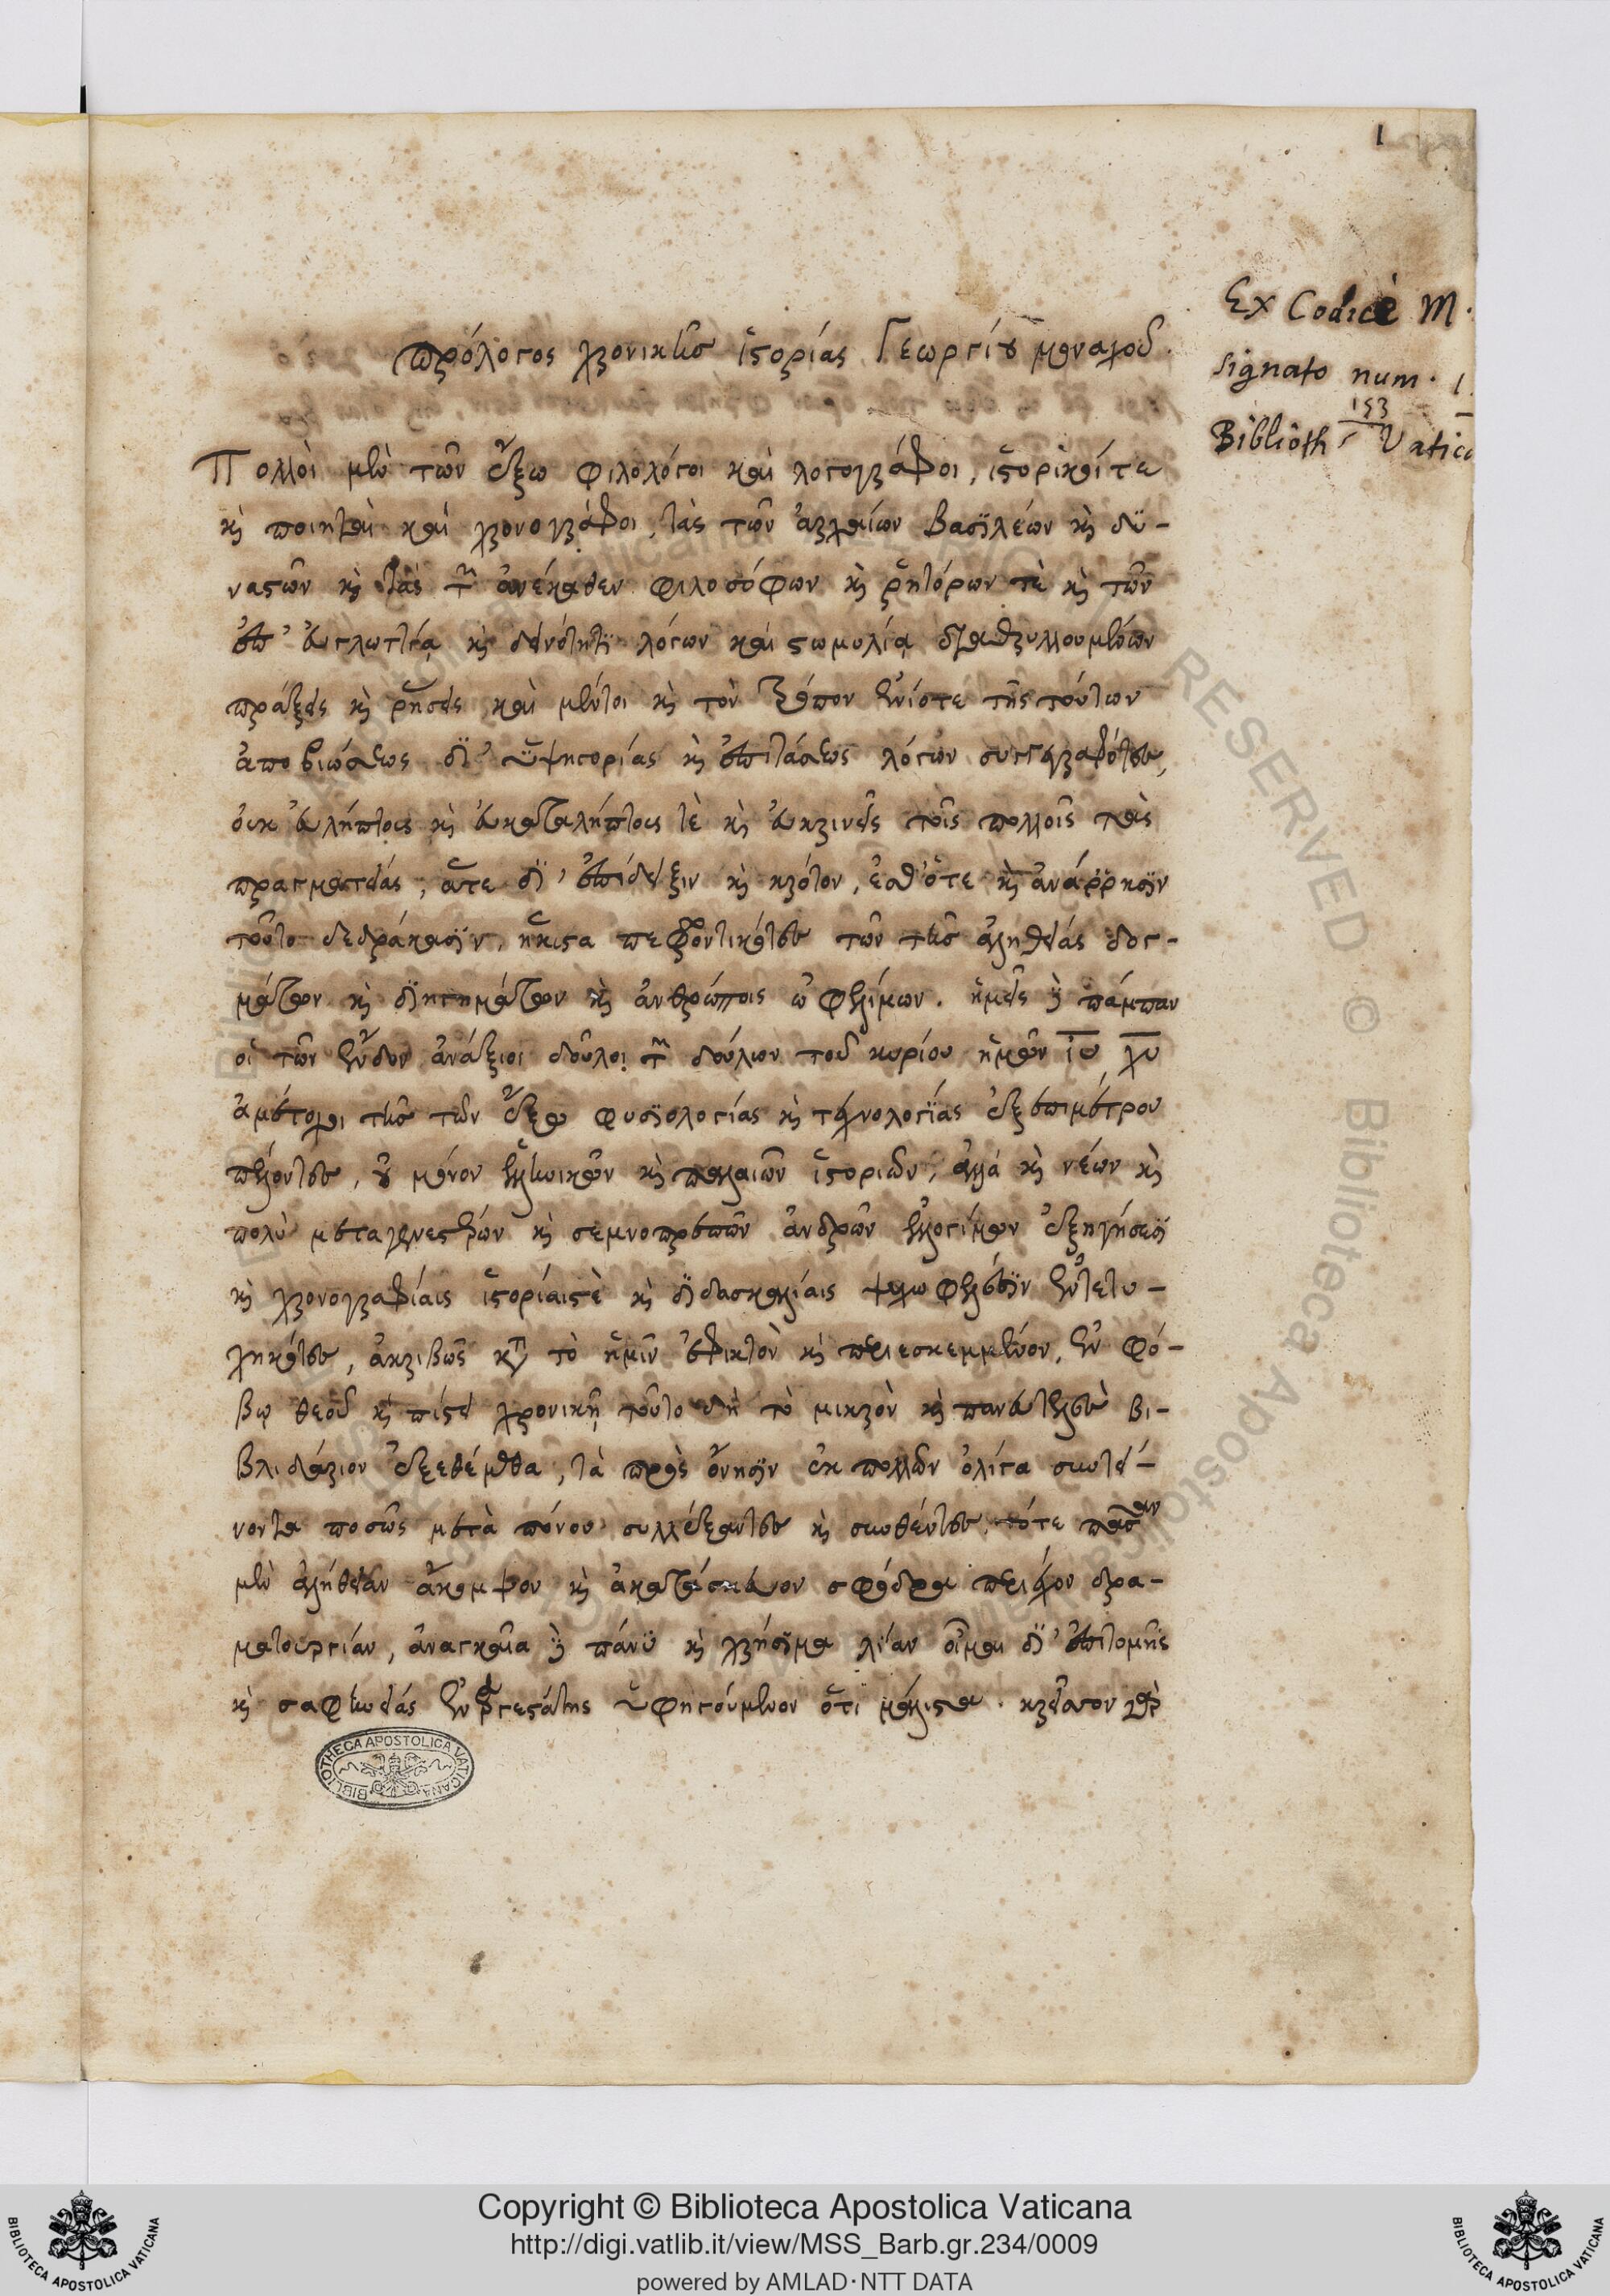 1
Ex Codice M.
signato num. 1
153
Biblioth. Vatica
Πρόλογος χρονικῆς ἱστορίας Γεωργίου μοναχοῦ.
Πολλοὶ μὲν τῶν ἔξω φιλολόγοι καὶ λογογράφοι, ἱστορικοί τε
καὶ ποιηταὶ καὶ χρονογράφοι, τὰς τῶν ἀρχαίων βασϊλέων καὶ δϋ-
ναστῶν καὶ τὰς τῶν ἀνέκαθεν φιλοσόφων καὶ ῥητόρων τὲ καὶ τῶν
ἐπ' εὐγλωττίᾳ καὶ δεινότητϊ λόγων καὶ στωμυλίᾳ διαθρυλλουμένων
πράξεις καὶ ῥήσεις, καὶ μέντοι καὶ τὸν τρόπον ἐνίοτε τῆς τούτων
ἀποβιώσεως δϊ' ὑψηγορίας καὶ ἐπιτάσεως λόγων συγγραφότες,
οὐκ εὐλήπτους καὶ εὐκαταλήπτους τὲ καὶ εὐκρινεῖς τοῖς πολλοῖς τὰς
πραγματείας, ἅτε δϊ' ἐπίδειξιν καὶ κρότον, ἐσθ' ὅτε καὶ ἀνάρρησϊν
τοῦτο δεδράκασϊν, ἥκιστα πεφροντικότες τῶν τῆς ἀληθείας δογ-
μάτων καὶ δϊηγημάτων καὶ ἀνθρώποις ὠφελίμων. ἡμεῖς δὲ πάμπαν
οἱ τῶν ἔνδον ἀνάξιοι δοῦλοι τῶν δούλων τοῦ κυρίου ἡμῶν ιυ χυ
ἀμέτοχοι τῆς τῶν ἔξω φυσϊολογίας καὶ τεχνολογϊας ἐξεπιμέτρου
πέλοντες, οὐ μόνον ἑλληνικῶν καὶ παλαιῶν ἱστοριῶν, ἀλλὰ καὶ νέων καὶ
πολὺ μεταγενεστέρων καὶ σεμνοπρεπῶν ἀνδρῶν ἐλλογίμων ἐξηγήσεσϊ
καὶ χρονογραφίαις ἱστορίαις τὲ καὶ δϊδασκαλίαις ψυχωφελέσϊν ἐντετυ-
χηκότες, ἀκριβῶς κατὰ τὸ ἡμῖν ἐφικτὸν καὶ περιεσκεμμένον, ἐν φό-
βῳ θεοῦ καὶ πίστει χρονικῇ τοῦτο δὴ τὸ μικρὸν καὶ πανευτελὲς βι-
βλιδάριον ἐξεθέμεθα, τὰ πρὸς ὄνησϊν ἐκ πολλῶν ὀλίγα συντεί-
νοντα ποσῶς μετὰ πόνου συλλέξαντες καὶ συνθέντες, τότε πᾶσαν
μὲν ἀλήθειαν ἄκομψον καὶ ἀκατάσκευον σφόδρα περιέχον δρα-
ματουργίαν, ἀναγκαῖα δὲ πάνϋ καὶ χρήσϊμα λϊαν οἶμαι δϊ' ἐπιτομῆς
καὶ σαφηνείας ἐνεργεστάτης ὑφηγούμενον ὅτϊ μάλιστα. κρεῖττον γὰρ
BIBLIOTHECA APOSTOLICA VATICANA
Copyright © Biblioteca Apostolica Vaticana
http://digi.vatlib.it/view/MSS_Barb.gr.234/0009
powered by AMLAD·NTT DATA